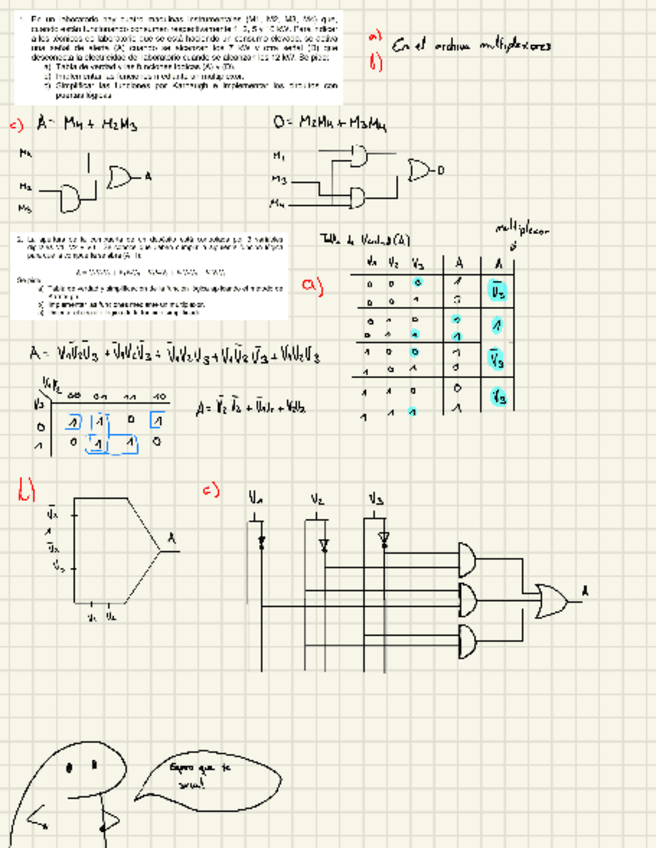 1. En un laboratorio hay cuatro máquinas instrumentales (M1, M2, M3, M4) que,
cuando están funcionando consumen respectivamente 1, 3, 5 y 10 kW. Para indicar
a los técnicos de laboratorio que se está haciendo un consumo elevado, se activa
una señal de alerta (A) cuando se alcanzan los 7 kW y otra señal (D) que
desconecta la electricidad del laboratorio cuando se alcanzan los 12 kW. Se pide:
a) Tabla de verdad y funciones lógicas (A) y (D).
b) Implementar las funciones mediante un multiplexor.
c) Simplificar las funciones por Karnaugh e implementar los circuitos con
puertas lógicas
a)
b)
En el archivo multiplexores
c) A = M4 + M2M3
D = M2M4 + M3M4
M4
M2
M3
A
M1
M3
M4
D
2. La apertura de la compuerta de un depósito está controlada por 3 variables
Se pide
a) Tabla de verdad y simplificación de la función lógica aplicando el método de
Karnaugh
b) Implementar las funciones mediante un multiplexor.
a)
Tabla de Verdad (A)
multiplexor
V1 V2 V3 A A
0 0 0 1 V̄3
0 0 1 0
0 1 0 1 1
0 1 1 1
1 0 0 1 V̄3
1 0 1 0
1 1 0 0 V3
1 1 1 1
A = V̄1V̄2V̄3 + V̄1V2V̄3 + V̄1V2V3 + V1V̄2V̄3 + V1V2V3
V1V2
V3 00 01 11 10
0 1 1 0 1
1 0 1 1 0
A = V̄2 V̄3 + V̄1V2 + V2V3
b)
V̄3
1
V̄3
V3
A
V1 V2
c)
V1 V2 V3
A
Espero que te
sirva!